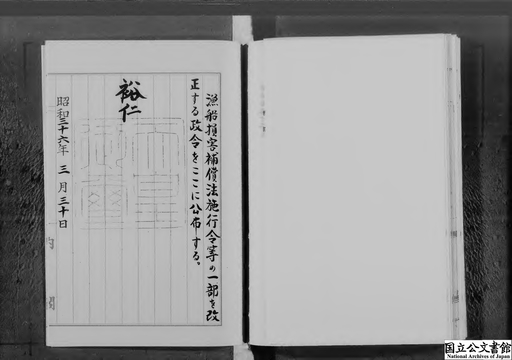 漁船損害補償法施行令等の一部を改
正する政令をここに公布する。
裕仁
昭和三十六年三月三十日
内閣
国立公文書館
National Archives of Japan